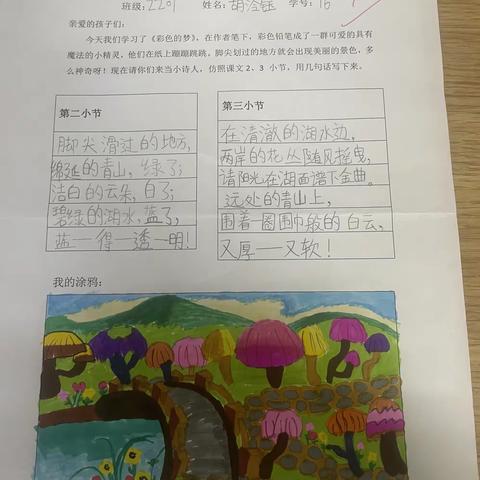 班级: 2201 姓名: 胡淦钰 学号: 16
亲爱的孩子们：
今天我们学习了《彩色的梦》，在作者笔下，彩色铅笔成了一群可爱的具有
魔法的小精灵，他们在纸上蹦蹦跳跳。脚尖划过的地方就会出现美丽的景色，多
么神奇呀！现在请你们来当小诗人，仿照课文2、3 小节，用几句话写下来。
第二小节
脚尖滑过的地方，
绵延的青山，绿了；
洁白的云朵，白了；
碧绿的湖水，蓝了，
蓝——得—透—明！
第三小节
在清澈的湖水边，
两岸的花丛随风摇曳，
请阳光在湖面谱下金曲。
远处的青山上，
围着一圈围巾般的白云，
又厚——又软！
我的涂鸦：